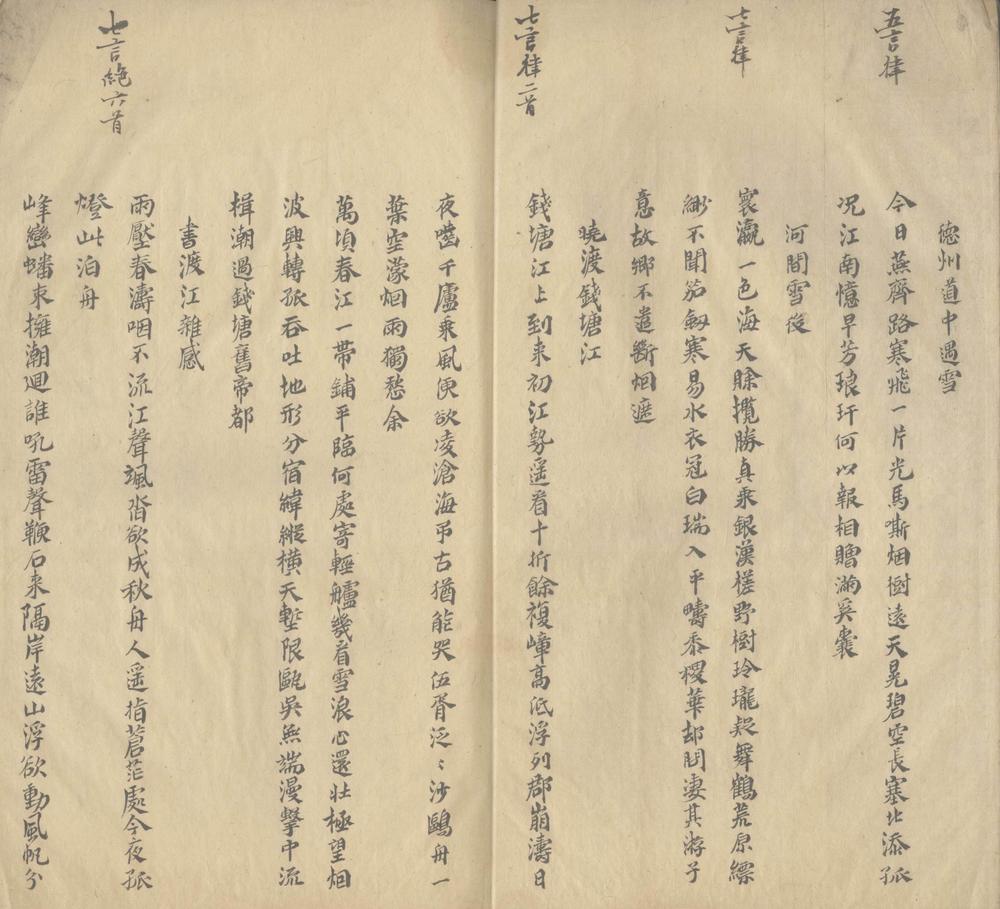 五言律
德州道中遇雪
今日燕齊路寒飛一片光馬嘶烟樹遠天晃碧空長塞北添孤
况江南憶早芳琅玕何以報相贈滿奚囊
七言律
河間雪後
寰瀛一色海天賒攬勝真乘銀漢槎野樹玲瓏疑舞鶴荒原縹
緲不聞笳劒寒易水衣冠白瑞入平疇黍稷華却悶凄其游子
意故鄉不遣斷烟遮
曉渡錢塘江
七言律二首
錢塘江上到来初江勢遥看十折餘複嶂高低浮列郡崩濤日
夜嚙千廬乘風便欲凌滄海弔古猶能哭伍胥泛〻沙鷗舟一
葉空濛烟雨獨愁余
萬頃春江一帶鋪平臨何處寄輕艫幾看雪浪心還壯極望烟
波興轉孤吞吐地形分宿緯縱橫天塹限甌吳無端漫擊中流
楫潮過錢塘舊帝都
書渡江雜感
七言絶六首
雨壓春濤咽不流江聲颯沓欲成秋舟人遥指蒼茫處今夜孤
燈此泊舟
峰巒蟠束擁潮迴誰吼雷聲鞭石来隔岸遠山浮欲動風帆分